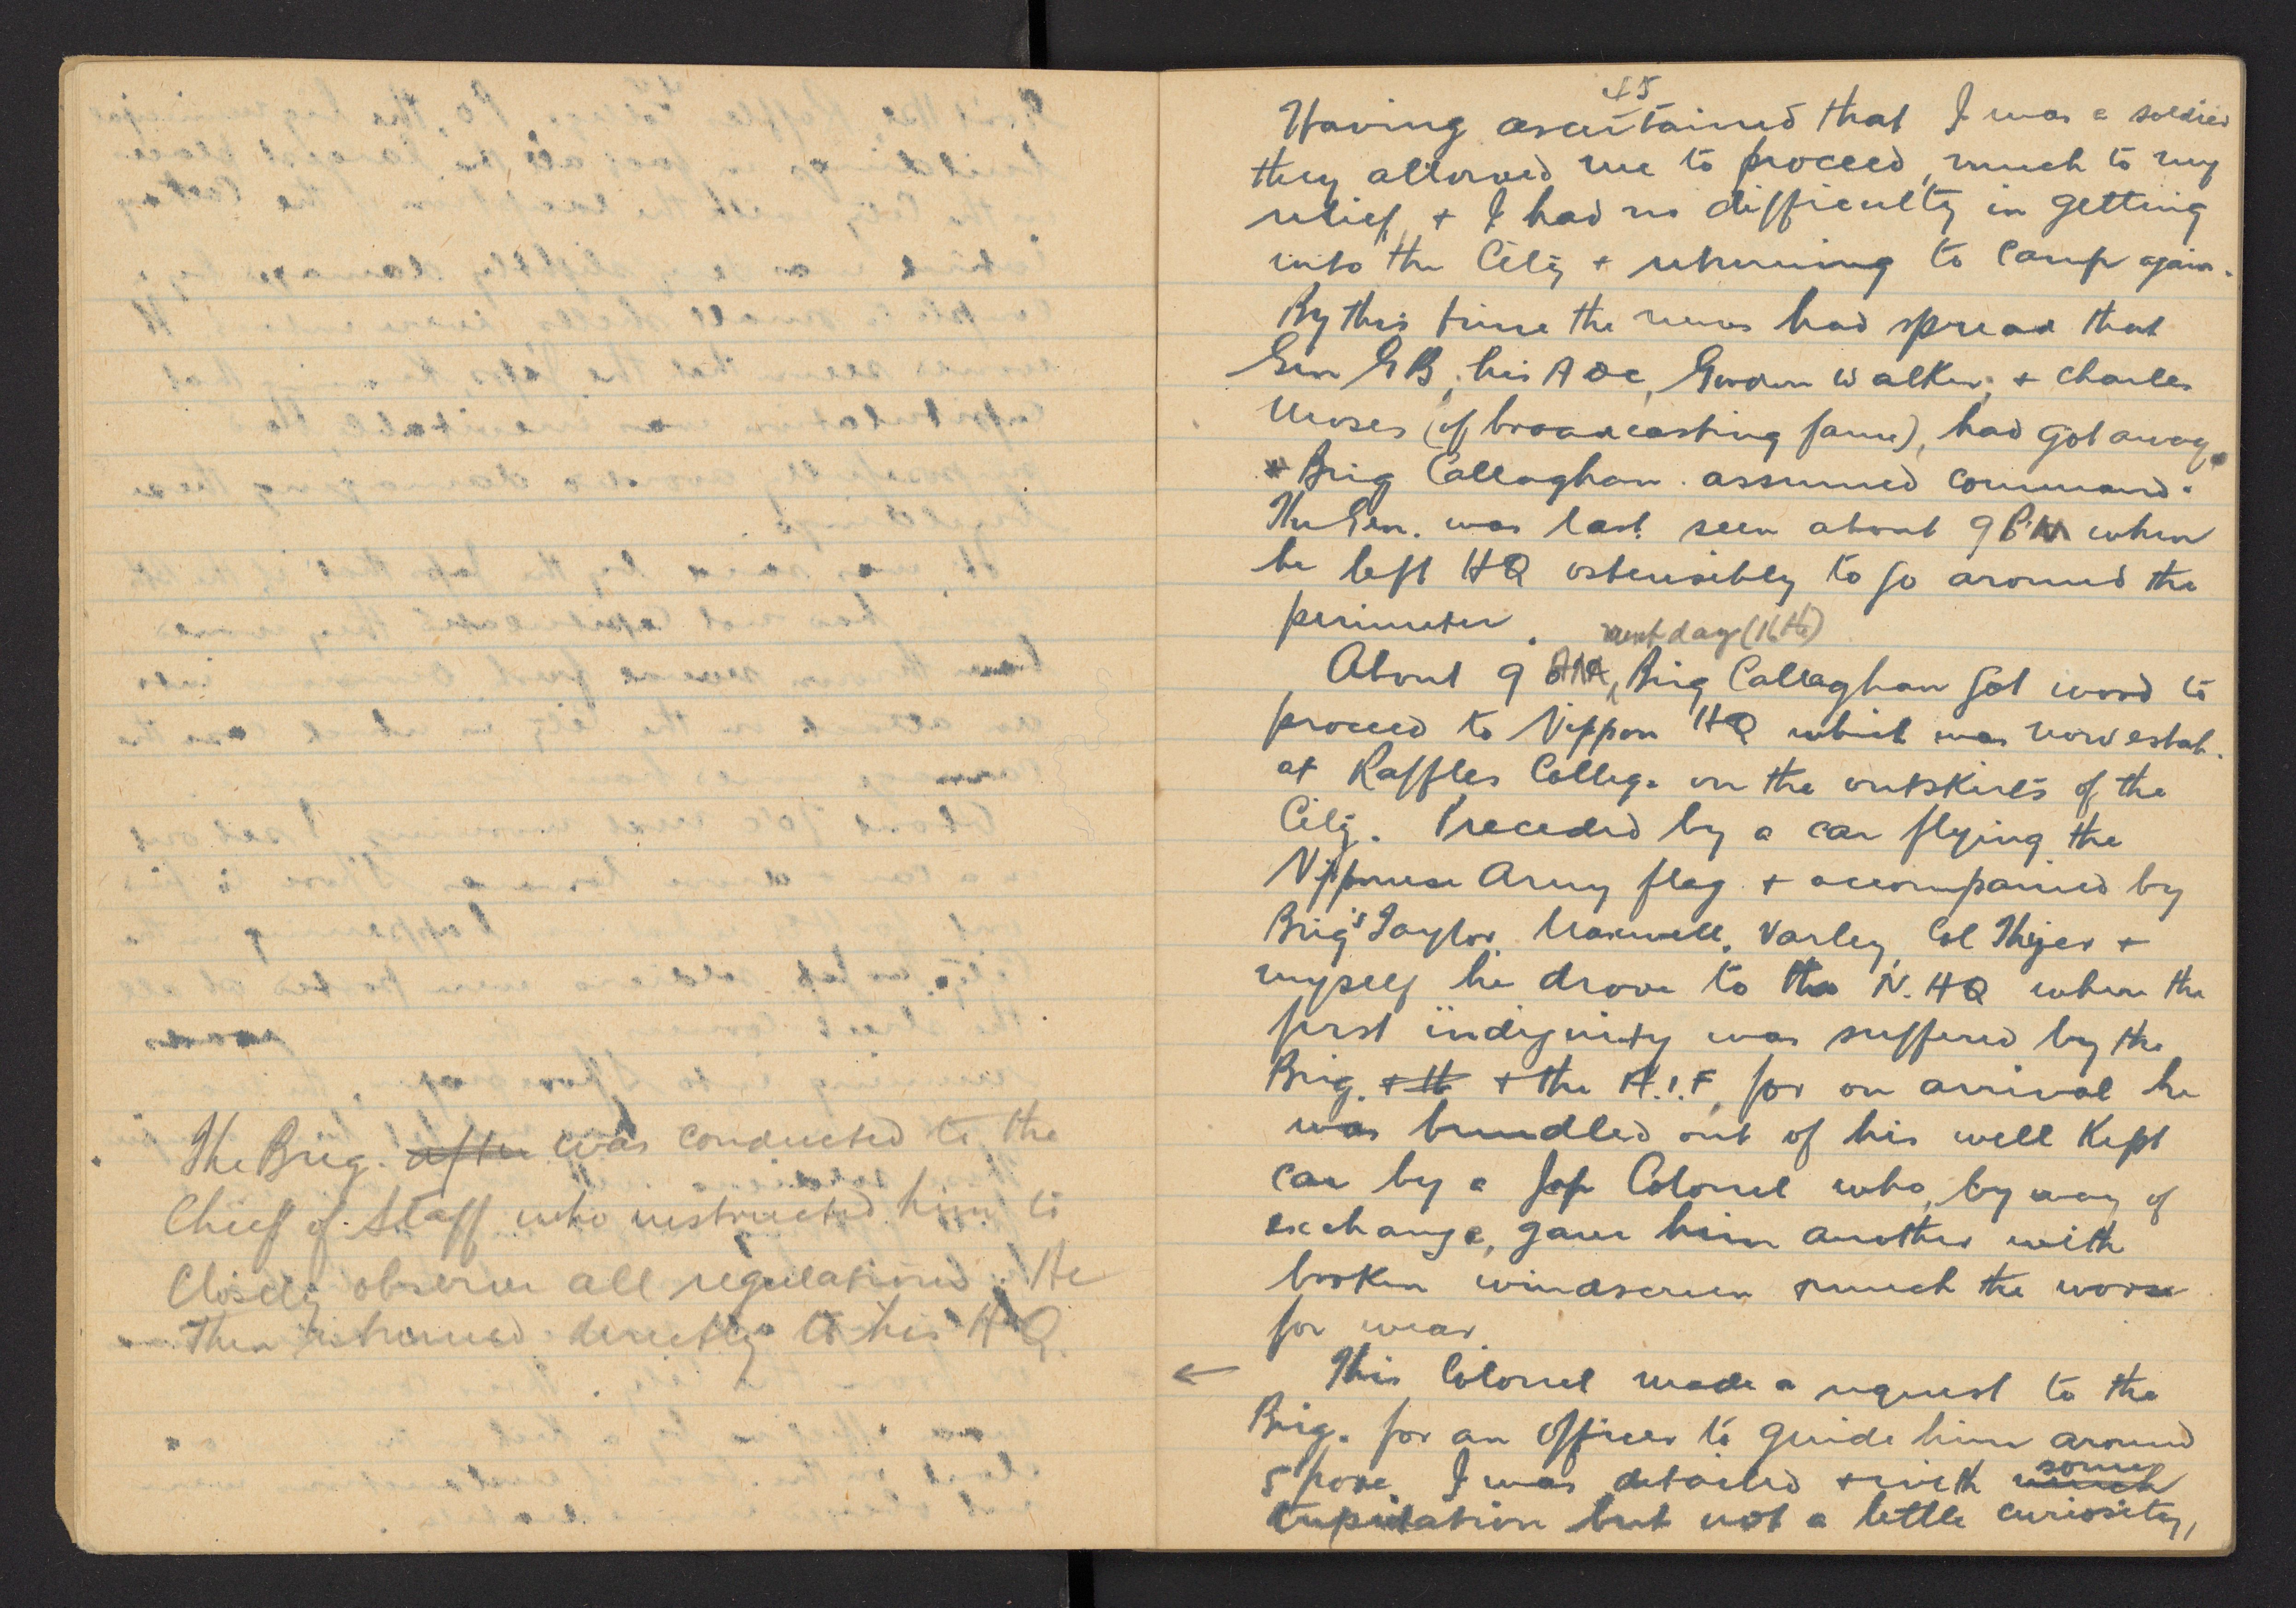 The Brig. after was conducted to the
Chief of Staff who instructed him to
closely observe all regulations. He
then returned directly to his HQ.
45
Having ascertained that I was a soldier
they allowed me to proceed, much to my
relief, + I had no difficulty in getting
into the City + returning to camp again.
By this time the news had spread that
Gen GB, his ADC, Gordon Walker, + Charles
Moses (of broadcasting fame), had got away
+ Brig Callaghan assumed command.
The Gen. was last seen about 9 PM when
he left HQ ostensibly to go around the
perimeter.
next day (16th)
About 9 AM, Brig Callaghan got word to
proceed to Nippon HQ which was now estab.
at Raffles College on the outskirts of the
City. Preceded by a car flying the
Nipponese Army flag + accompanied by
Brig's Taylor, Maxwell, Varley, Col Thyer +
myself he drove to the N. HQ where the
first indignity was suffered by the
Brig. + th + the A.I.F, for on arrival he
was bundled out of his well kept
car by a Jap Colonel who, by way of
exchange, gave him another with
broken windscreen + much the worse
for wear.
← This Colonel made a request to the
Brig. for an officer to guide him around
S'pore. I was detailed + with much some
trepidation but not a little curiosity,